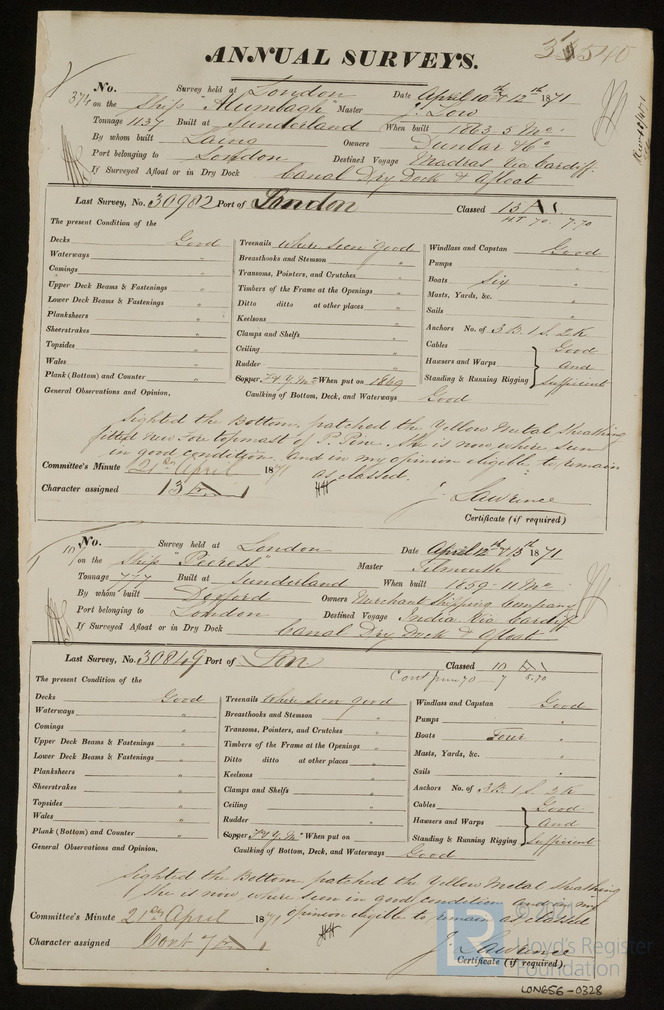 ANNUAL SURVEYS.
33540
No. 374 Survey held at London Date April 10th & 12th 1871
on the Ship "Alumbagh" Master J. Low
Tonnage 1137 Built at Sunderland When built 1863-5 Mo.
By whom built Laing Owners Dunbar & Co
Port belonging to London Destined Voyage Madras via Cardiff.
If Surveyed Afloat or in Dry Dock Canal Dry Dock & Afloat
Last Survey, No. 30982 Port of London Classed 13 A1
HT 70. 7.70
The present Condition of the
Decks Good Treenails where seen good Windlass and Capstan Good
Waterways " Breasthooks and Stemson " Pumps "
Comings " Transoms, Pointers, and Crutches " Boats Six "
Upper Deck Beams & Fastenings " Timbers of the Frame at the Openings " Masts, Yards, &c. "
Lower Deck Beams & Fastenings " Ditto ditto at other places " Sails "
Planksheers " Keelsons " Anchors No. of 3 B. 1 S. 2 K
Sheerstrakes " Clamps and Shelfs " Cables Good
Topsides " Ceiling " Hawsers and Warps and
Wales " Rudder " Standing & Running Rigging Sufficient
Plank (Bottom) and Counter " Copper, F & Y. Ml When put on 1869
General Observations and Opinion, Caulking of Bottom, Deck, and Waterways Good
Sighted the Bottom, patched the Yellow Metal Sheathing
fitted new Fore topmast of P. Pine. She is now where seen
in good condition and in my opinion eligible to remain
as classed.
Committee's Minute 21st April 1871
Character assigned 13 A1
J. Lawrence
Certificate (if required)
No. Survey held at London Date April 12th & 13th 1871
on the Ship "Peeress" Master Tilmouth
Tonnage 777 Built at Sunderland When built 1859-11 Mo
By whom built Doxford Owners Merchant Shipping Company
Port belonging to London Destined Voyage India via Cardiff
If Surveyed Afloat or in Dry Dock Canal Dry Dock & Afloat
Last Survey, No. 30849 Port of Lon Classed 10 A1
Cont 70 - 7 5.70
The present Condition of the
Decks Good Treenails where seen good Windlass and Capstan Good
Waterways " Breasthooks and Stemson " Pumps "
Comings " Transoms, Pointers, and Crutches " Boats Four "
Upper Deck Beams & Fastenings " Timbers of the Frame at the Openings " Masts, Yards, &c. "
Lower Deck Beams & Fastenings " Ditto ditto at other places " Sails "
Planksheers " Keelsons " Anchors No. of 3 B. 1 S. 2 K
Sheerstrakes " Clamps and Shelfs " Cables Good
Topsides " Ceiling " Hawsers and Warps and
Wales " Rudder " Standing & Running Rigging Sufficient
Plank (Bottom) and Counter " Copper, F & Y. Ml When put on
General Observations and Opinion, Caulking of Bottom, Deck, and Waterways Good
Sighted the Bottom patched the Yellow Metal Sheathing
She is now where seen in good condition and in my
opinion eligible to remain as classed
Committee's Minute 21st April 1871
Character assigned Cont 7
J. Lawrence
Certificate (if required).
© 2021
Lloyd's Register
Foundation
LON656-0328